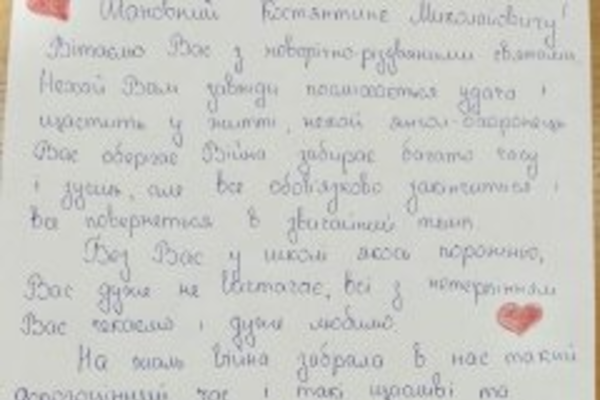 Шановний Костянтине Миколайовичу!
Вітаємо Вас з новорічно-різдвяними святами.
Нехай Вам завжди посміхається удача і
щастить у житті, нехай янгол-охоронець
Вас оберігає Війна забирає багато часу
і зусиль, але все обов'язково закінчиться і
все повернеться в звичайний темп
Без Вас у школі якось порожньо,
Вас дуже не вистачає, всі з нетерпінням
Вас чекаємо і дуже любимо.
На жаль війна забрала в нас такий
дорогоцінний час і такі щасливі та